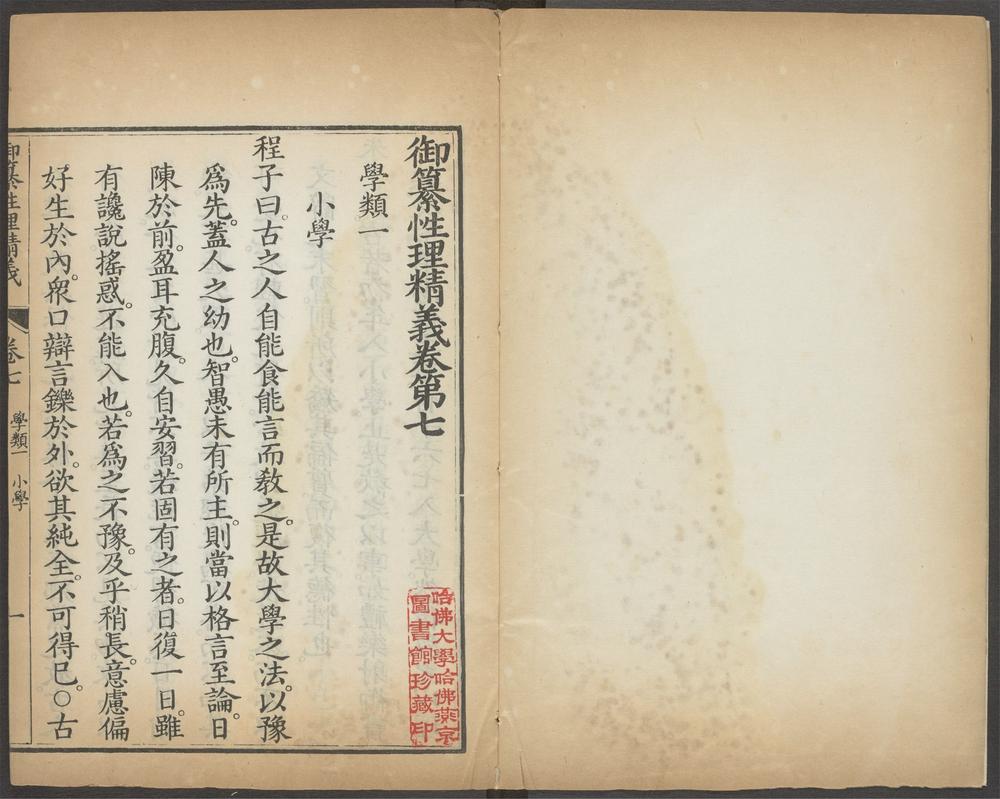 御纂性理精義卷第七
學類一
小學
程子曰。古之人自能食能言而敎之。是故大學之法。以豫
爲先。蓋人之幼也。智愚未有所主。則當以格言至論。日
陳於前。盈耳充腹。久自安習。若固有之者。日復一日。雖
有讒說搖惑。不能入也。若爲之不豫。及乎稍長。意慮偏
好生於內。衆口辯言鑠於外。欲其純全。不可得已。○古
御纂性理精義 卷七 學類一 小學 一
哈佛大學哈佛燕京
圖書館珍藏印